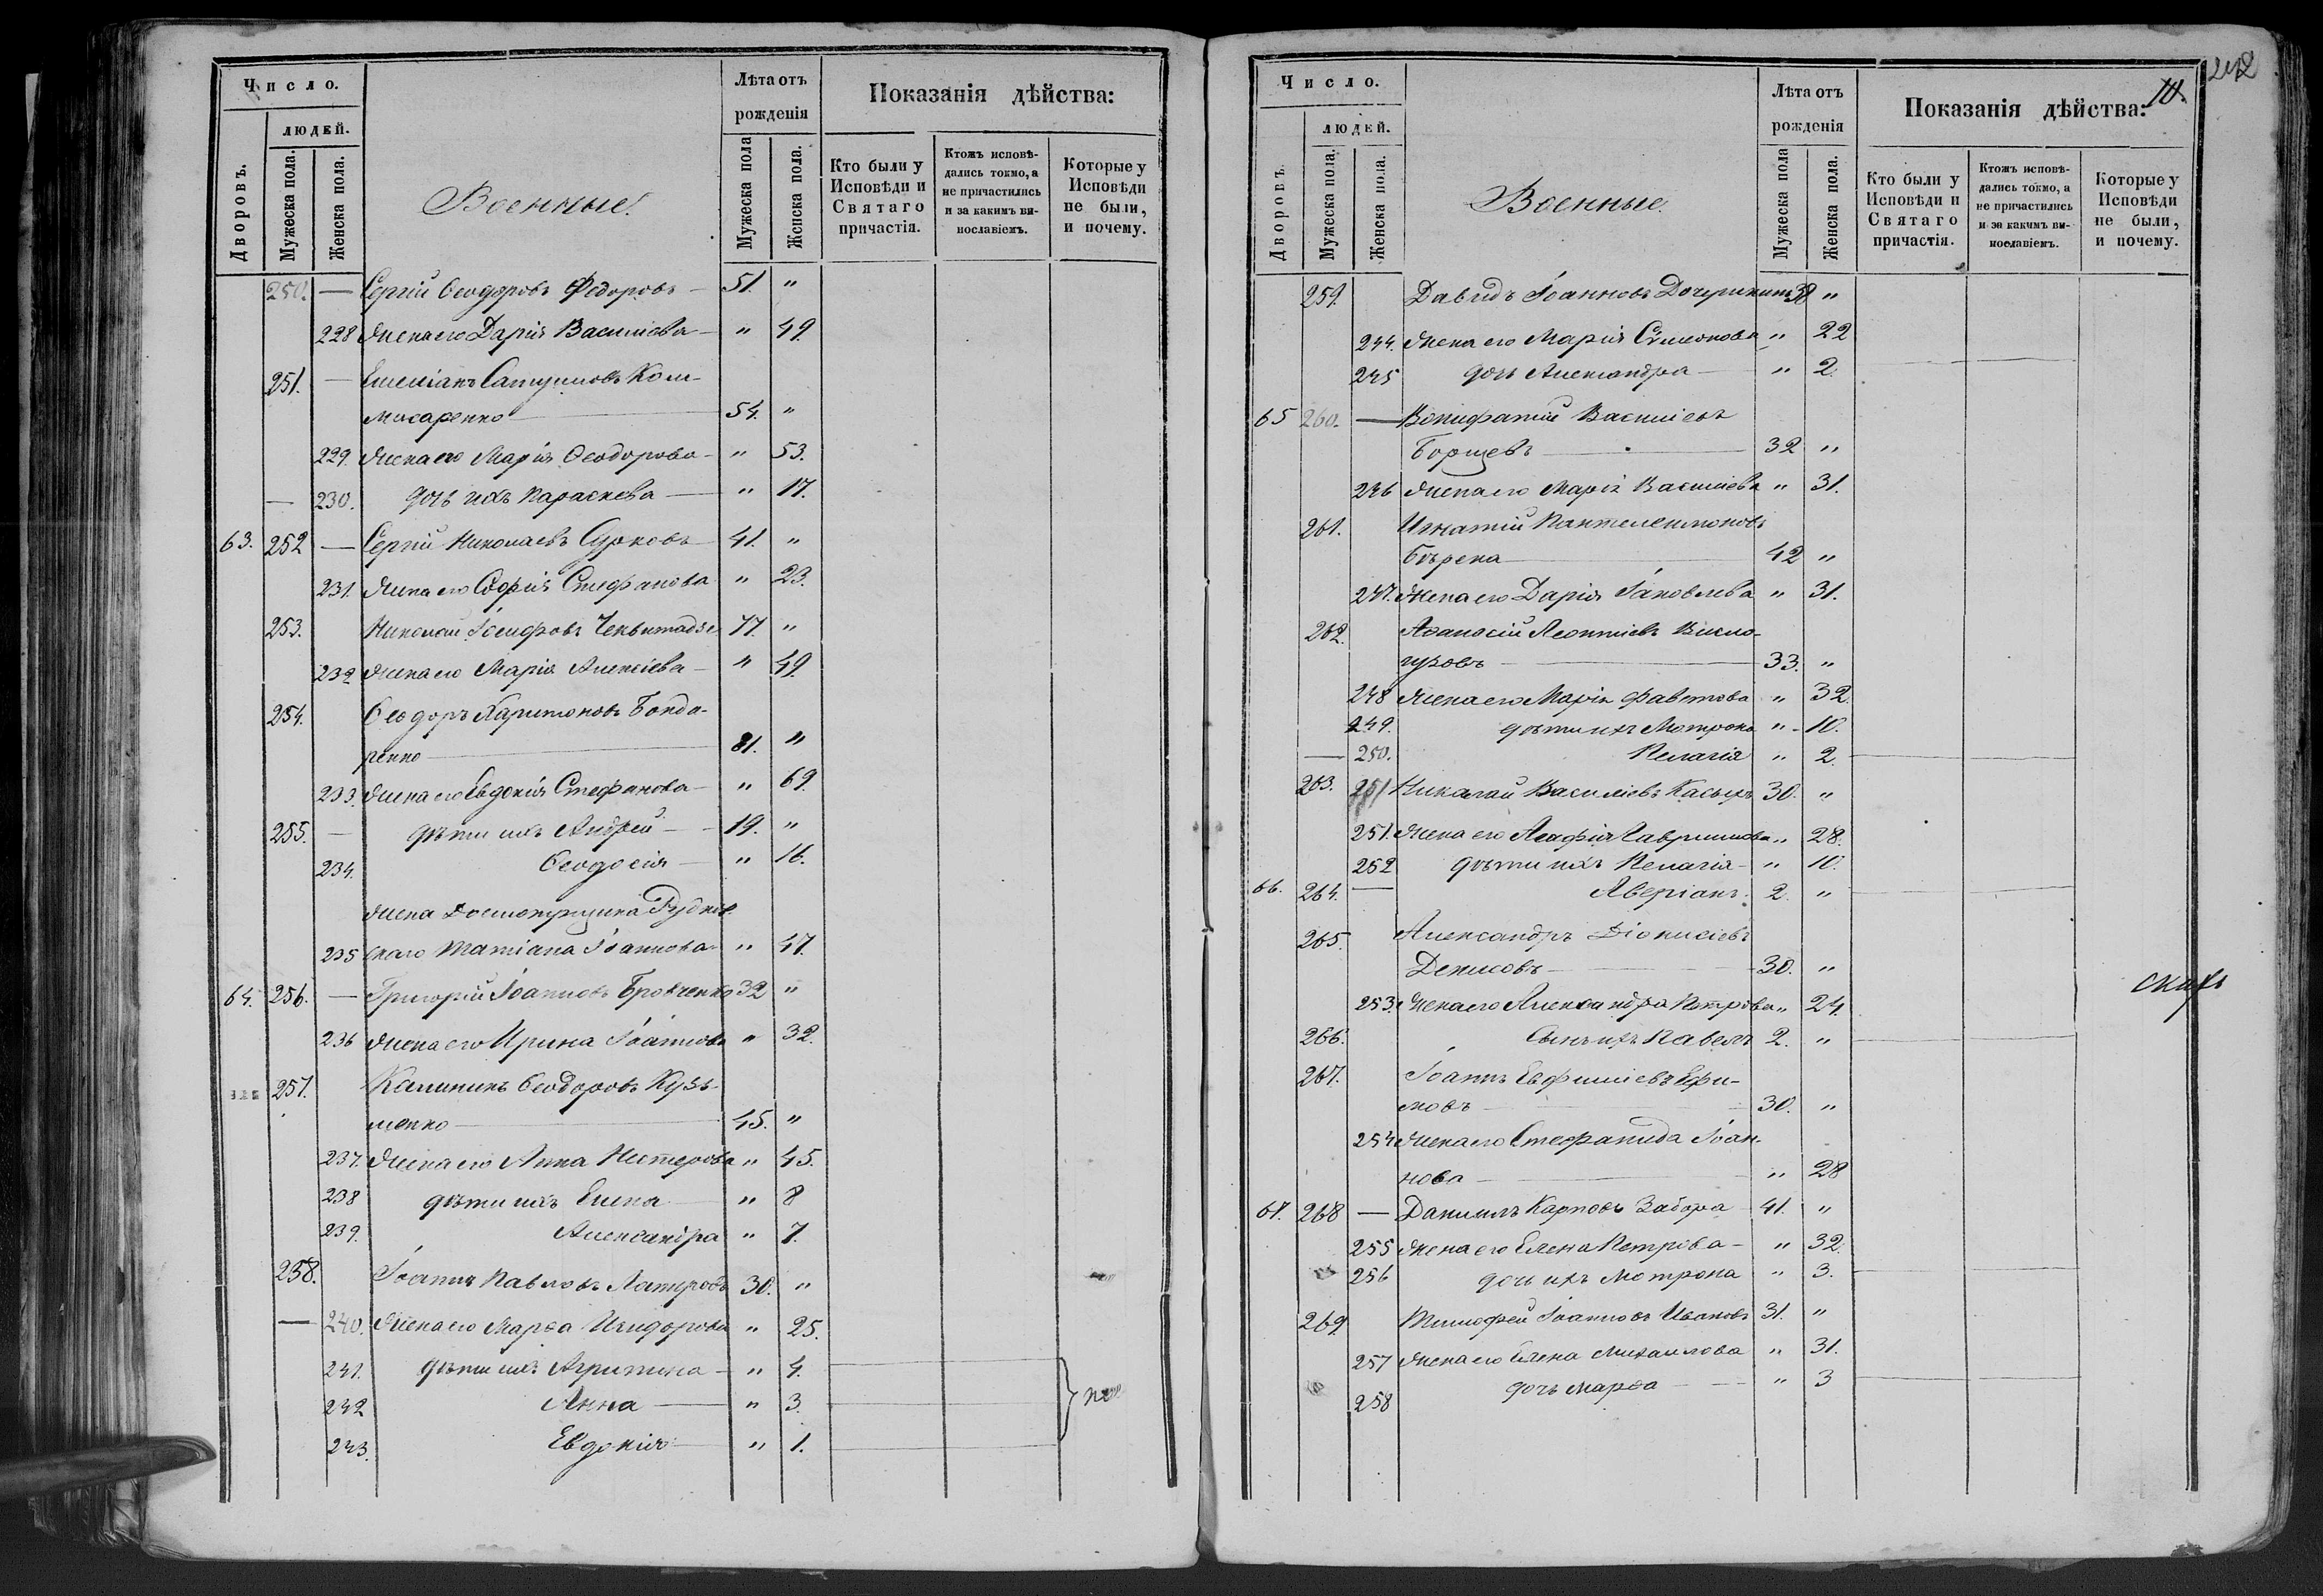 Число.
людей.
Дворовъ.
Мужеска пола.
Женска пола.
Военные.
Лѣта отъ
рожденія
Мужеска пола
Женска пола.
Показанія дѣйства:
Кто были у
Исповѣди и
Святаго
причастія.
Ктожъ исповѣ-
дались токмо, а
не причастились
и за какимъ ви-
нославіемъ.
Которые у
Исповѣди
не были,
и почему.
250. — Сергій Ѳеодоровъ Федоровъ — 51. "
228 Жена его Дарія Василіева — " 49.
251. —
мисаренко — 54. "
229. Жена его Марія Ѳеодорова — " 53.
— 230. дочь ихъ Параскева — " 17.
63. 252 — Сергій Николаевъ Сурковъ — 41. "
231. Жена его Софія Стефанова " 23.
253. Николай Іосифовъ 77. "
232 Жена его Марія Алексіева — " 49.
254. Ѳеодоръ Харитоновъ Бонда-
ренко — 81. "
233. Жена его Евдокія Стефанова — " 69.
255. — дѣти ихъ Андрей — 19. "
234. Ѳеодосія — " 16.
Жена Досмотрщика Рудков-
235 скаго Татіана Іоаннова — " 47.
64. 256. — Григорій Іоанновъ Бровченко 32 "
236 Жена его Ирина Іоаннова " 32.
257. Калинникъ Ѳеодоровъ Кузь-
менко — 45. "
237. Жена его Анна Нестерова " 45.
238 дѣти ихъ Елена — " 8
239. Александра " 7.
258. Іоаннъ Павловъ 30. "
— 240. Жена его Марѳа Исидорова " 25.
241. дѣти ихъ Агрипина — " 4.
242 Анна — " 3.
243. Евдокія — " 1.
242
10.
Число.
людей.
Дворовъ.
Мужеска пола.
Женска пола.
Военные.
Лѣта отъ
рожденія
Мужеска пола
Женска пола.
Показанія дѣйства:
Кто были у
Исповѣди и
Святаго
причастія.
Ктожъ исповѣ-
дались токмо, а
не причастились
и за какимъ ви-
нославіемъ.
Которые у
Исповѣди
не были,
и почему.
259. Давидъ Іоанновъ 38 "
244. Жена его Марія Сѵмеонова " 22
245 дочь Александра — " 2.
65 260. — Вонифатій Василіевъ
Борщевъ — 32 "
246 Жена его Марія Василіева " 31.
261. Игнатій Пантелеимоновъ
42 "
247. Жена его Дарія Іаковлева " 31.
262. Аѳанасій Леонтіевъ Висло-
гузовъ — 33. "
248 Жена его Марія " 32.
249. дѣти ихъ Мотрона " 10.
— 250. Пелагія " 2.
263. 251 Николай Василіевъ 30. "
251. Жена его Агафія Гавриилова " 28.
252 дѣти ихъ Пелагія — " 10.
66. 264. — Аверіанъ. 2. "
265. Александръ Діонисіевъ
Денисовъ — 30. "
253. Жена его Александра Петрова " 24.
266. Сынъ ихъ Павелъ 2. "
267. Іоаннъ Евфиміевъ Ефи-
мовъ — 30. "
254 Жена его Стефанида Іоан-
нова — " 28
67. 268 — Даніилъ Карповъ Забора 41. "
255 Жена его Елена Петрова — " 32.
256 дочь ихъ Мотрона " 3.
269 Тимофей Іоанновъ Ивановъ 31. "
257 Жена его Елена Михаилова " 31.
258 дочь Марѳа — " 3